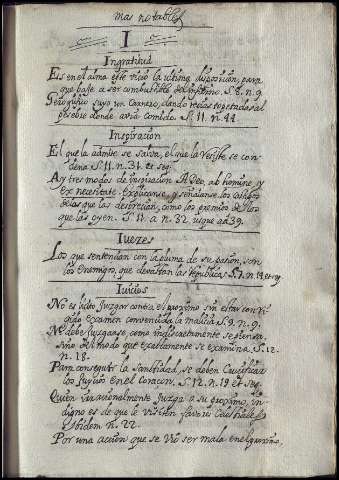 mas notables
I
Ingratitud
Es en el alma este vicio la ultima disposicion, para
que baje a ser combustible del infierno. S. 8. n. 9.
Geroglifico suyo un Carnero, dando recias topetadas al
pesebre donde avia comido. S. 11. n. 44
Inspiracion
El que la admite se salva, el que la resiste se con
dena S. 11. n. 31. et seq.
Ay tres modos de inspiracion A Deo, ab homine, y
ex necesitate. Explicanse, y señalanse los
de las que las desprecian, como los premios de los
que las oyen. S. 11 a n. 32 usque ad 39.
Iuezes
Los que sentencian con la pluma de su pasion, son
los enemigos, que devastan las Republicas S. 7. n. 14 et seq
Iuicios
No es licito Juzgar contra el proximo sin estar con
examen convencida la malicia S. 9. n. 9.
No debe Juzgarse, como indiscretamente se piensa,
sino del modo que exactamente se examina. S. 12.
n. 18.
Para conseguir la Santidad, se deben Crucificar
los Juycios en el Coraçon. S. 12. n. 19 et seq.
Quien irracionalmente Juzga a su proximo, in-
digno es de que le visiten favores Celestiales
Ibidem n. 22.
Por una accion que se vio ser mala en el proximo,